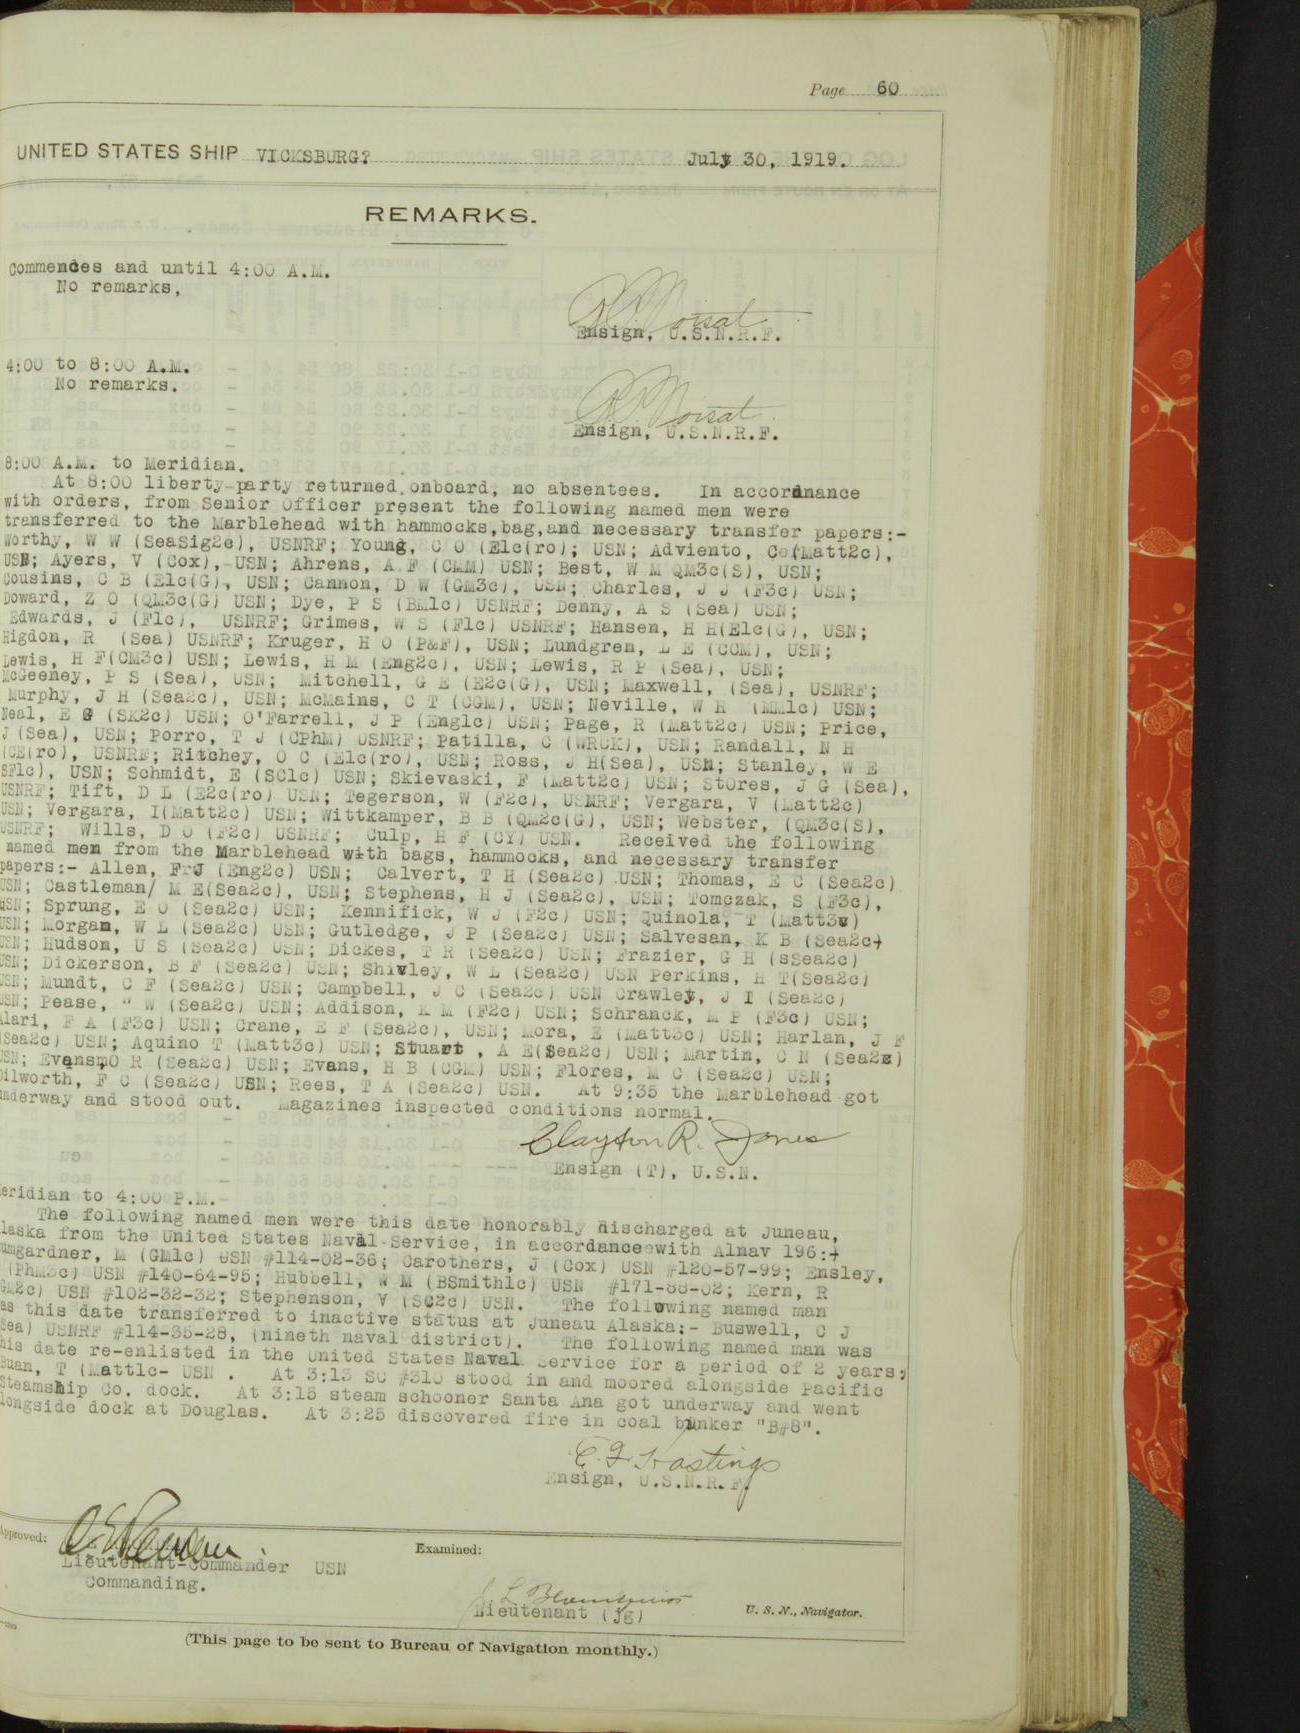 Page 60
UNITED STATES SHIP VICKSBURG? July 30, 1919.
REMARKS.
Commences and until 4:00 A.M.
No remarks,
Ensign, U.S.N.R.F.
4:00 to 8:00 A.M.
No remarks.
Ensign, U.S.N.R.F.
8:00 A.M. to Meridian.
At 8:00 liberty party returned onboard, no absentees. In accordnance
with orders, from Senior Officer present the following named men were
transferred to the Marblehead with hammocks,bag,and necessary transfer papers:-
Worthy, W W (SeaSig2c), USNRF; Young, C O (Elc(ro); USN; Adviento, C (Matt2c),
USN; Ayers, V (Cox), USN; Ahrens, A F (CMM) USN; Best, W M QM3c(S), USN;
Cousins, C B (Elc(G), USN; Cannon, D W (GM3c), USN; Charles, J J (F3c) USN;
Doward, Z O (QM3c(G) USN; Dye, P S (BM1c) USNRF; Denny, A S (Sea) USN;
Edwards, J (F1c), USNRF; Grimes, W S (F1c) USNRF; Hansen, H H(Elc(G), USN;
Higdon, R (Sea) USNRF; Kruger, H O (P&F), USN; Lundgren, L E (CCM), USN;
Lewis, H F(CM3c) USN; Lewis, H M (Eng2c), USN; Lewis, R P (Sea), USN;
McGeeney, P S (Sea), USN; Mitchell, G E (E2c(G), USN; Maxwell, (Sea), USNRF;
Murphy, J H (Sea2c), USN; McMains, C T (CGM), USN; Neville, W H (MM1c) USN;
Neal, E G (SK2c) USN; O'Farrell, J P (Eng1c) USN; Page, R (Matt2c) USN; Price,
J (Sea), USN; Porro, T J (CPhM) USNRF; Patilla, C (WRCK), USN; Randall, N H
(CE(ro), USNRF; Ritchey, O C (Elc(ro), USN; Ross, J H(Sea), USN; Stanley, W E
SF1c), USN; Schmidt, E (SC1c) USN; Skievaski, F (Matt2c) USN; Stores, J G (Sea),
USNRF; Tift, D L (E2c(ro) USN; Tegerson, W (F2c), USNRF; Vergara, V (Matt2c)
USN; Vergara, I(Matt2c) USN; Wittkamper, B B (QM2c(G), USN; Webster, (QM3c(S),
USNRF; Wills, D O (F2c) USNRF; Culp, H F (CY) USN. Received the following
named men from the Marblehead with bags, hammocks, and necessary transfer
papers:- Allen, F J (Eng2c) USN; Calvert, T H (Sea2c) USN; Thomas, E C (Sea2c)
USN; Castleman/ M E(Sea2c), USN; Stephens, H J (Sea2c), USN; Tomczak, S (F3c),
USN; Sprung, E O (Sea2c) USN; Kennifick, W J (F2c) USN; Quinola, T (Matt3c)
USN; Morgan, W L (Sea2c) USN; Gutledge, J P (Sea2c) USN; Salvesan, K B (Sea2c)
USN; Hudson, U S (Sea2c) USN; Dickes, T R (Sea2c) USN; Frazier, G H (sSea2c)
USN; Dickerson, B F (Sea2c) USN; Shivley, W L (Sea2c) USN Perkins, H T(Sea2c)
USN; Mundt, C F (Sea2c) USN; Campbell, J C (Sea2c) USN Crawley, J I (Sea2c)
USN; Pease, " W (Sea2c) USN; Addison, K M (F2c) USN; Schranck, M P (F3c) USN;
Alari, F A (F3c) USN; Crane, E F (Sea2c), USN; Mora, E (Matt3c) USN; Harlan, J F
(Sea2c) USN; Aquino T (Matt3c) USN; Stuart , A E(Sea2c) USN; Martin, C N (Sea2c)
USN; Evans, O R (Sea2c) USN; Evans, H B (CGM) USN; Flores, M C (Sea2c) USN;
Dilworth, F C (Sea2c) USN; Rees, T A (Sea2c) USN. At 9:35 the Marblehead got
underway and stood out. Magazines inspected conditions normal.
Clayton R. Jones
Ensign (T), U.S.N.
eridian to 4:00 P.M.
The following named men were this date honorably discharged at Juneau,
laska from the United States Naval Service, in accordance with Alnav 196:-
umgardner, M (GM1c) USN #114-02-36; Carothers, J (Cox) USN #120-57-99; Ensley,
(PhM3c) USN #140-64-95; Hubbell, W M (BSmith1c) USN #171-88-02; Kern, R
GM2c) USN #102-32-32; Stephenson, V (SC2c) USN. The following named man
as this date transferred to inactive status at Juneau Alaska:- Buswell, C J
Sea) USNRF #114-35-28, (nineth naval district). The following named man was
his date re-enlisted in the United States Naval Service for a period of 2 years;
Buan, T (Matt1c- USN . At 3:13 SC #310 stood in and moored alongside Pacific
Steamship Co. dock. At 3:15 steam schooner Santa Ana got underway and went
longside dock at Douglas. At 3:25 discovered fire in coal bunker "B#8".
E. F. Hastings
Ensign, U.S.N.R.F.
Approved:
Lieutenant-Commander USN
Commanding.
Examined:
Lieutenant (jg) U. S. N., Navigator.
(This page to be sent to Bureau of Navigation monthly.)